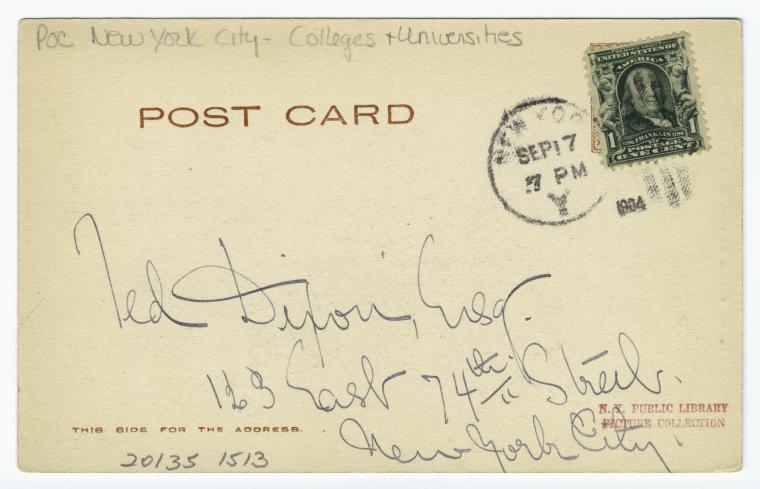 Poc New York City - Colleges + Universities
POST CARD
SERIES 1902
UNITED STATES OF
AMERICA
1 1706 FRANKLIN 1790 1
POSTAGE
ONE CENT
NEW YORK
SEP 17
7 PM
Y
1904
Ted Dixon, Esq.
123 East 74th Street.
New York City.
N. Y. PUBLIC LIBRARY
PICTURE COLLECTION
THIS SIDE FOR THE ADDRESS.
20135 1513